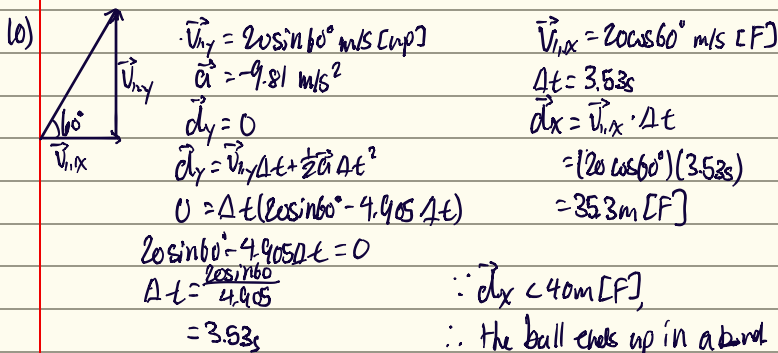 10)
V⃗₁,y
60°
V⃗₁,x
V⃗₁,y = 20sin60° m/s [up]
a⃗ = -9.81 m/s²
d⃗y = 0
d⃗y = V⃗₁,yΔt + ½a⃗Δt²
0 = Δt(20sin60° - 4.905Δt)
20sin60° - 4.905Δt = 0
Δt = 20sin60 / 4.905
= 3.53s
V⃗₁,x = 20cos60° m/s [F]
Δt = 3.53s
d⃗x = V⃗₁,x · Δt
= (20cos60°)(3.53s)
= 35.3m [F]
∵ d⃗x < 40m [F],
∴ the ball ends up in a